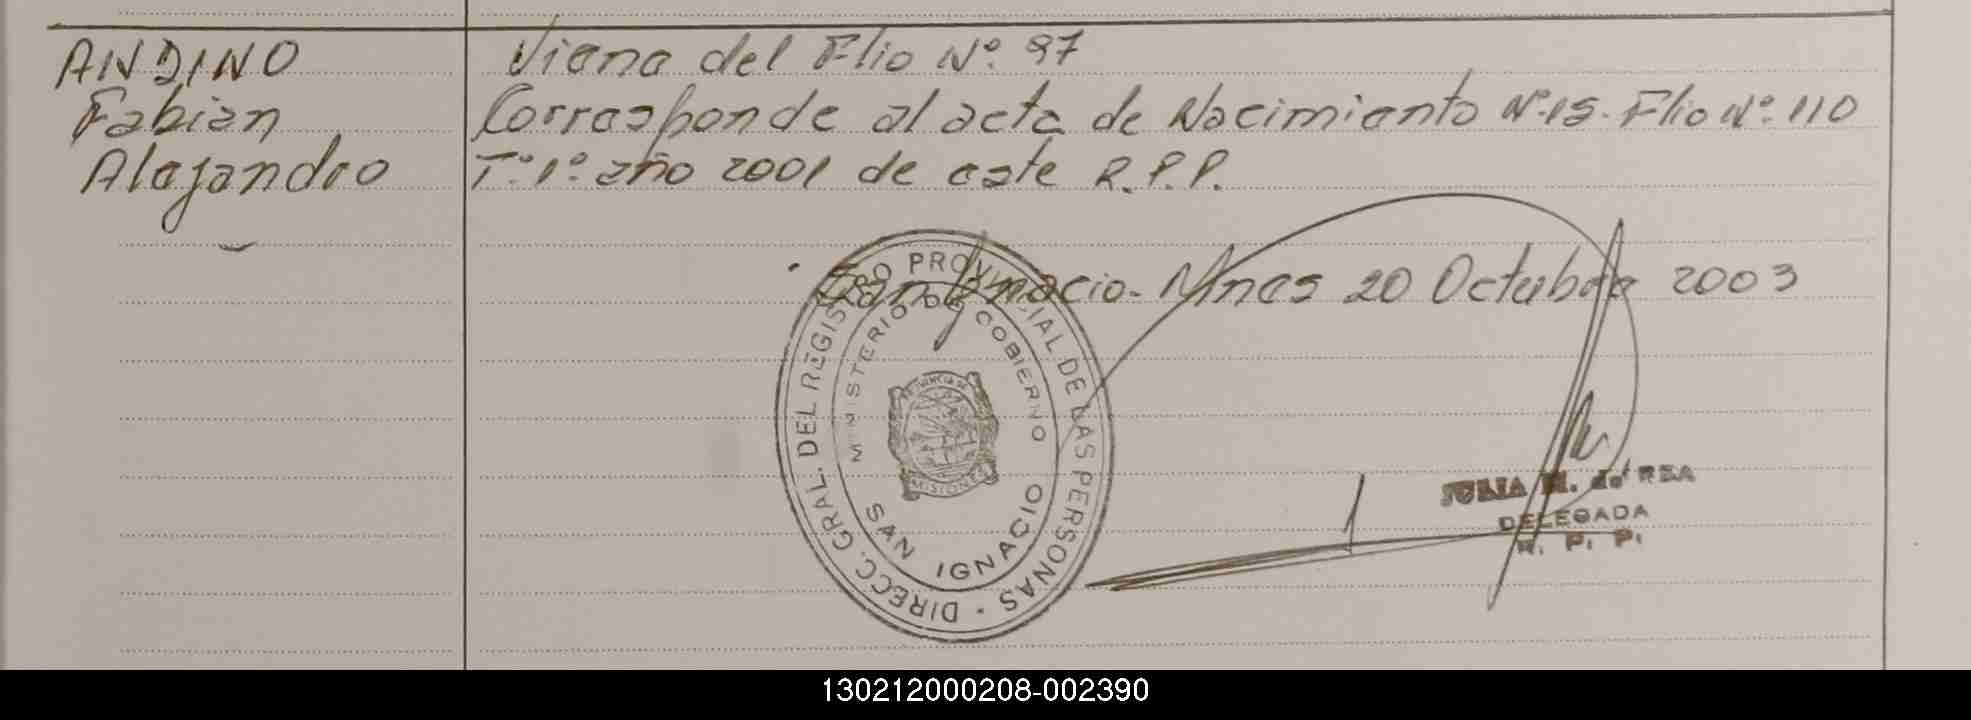 ANDINO
Fabian
Alejandro
Viene del Flio Nº. 97
Corresponde al acta de Nacimiento Nº.15. Flio Nº. 110
Tº.1º. año 2001 de este R.P.P.
San Ignacio. Mnes 20 Octubre 2003
DIRECC. GRAL. DEL REGISTRO PROVINCIAL DE LAS PERSONAS
MINISTERIO DE GOBIERNO
PROVINCIA DE
MISIONES
SAN IGNACIO
JULIA M. de REA
DELEGADA
R. P. P.
130212000208-002390